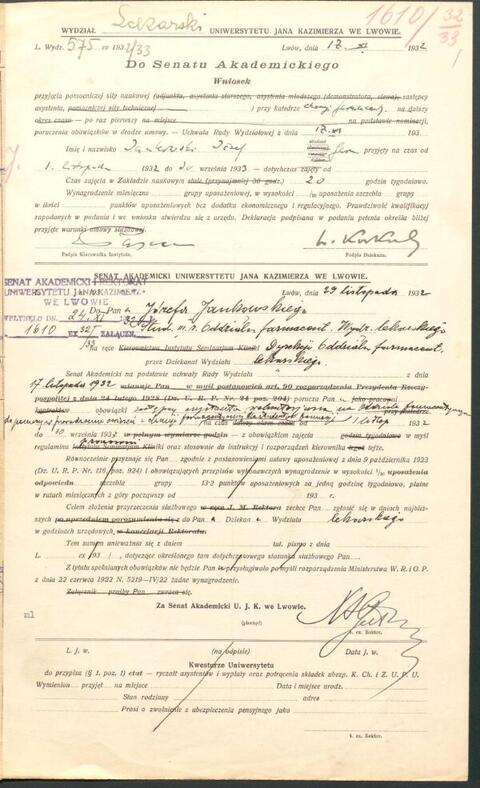 1610/32/33
WYDZIAŁ Lekarski UNIWERSYTETU JANA KAZIMIERZA WE LWOWIE.
L. Wydz. 575 ex 1932/33 Lwów, dnia 17. XI. 1932
Do Senatu Akademickiego
Wniosek
przyjęcia pomocniczej siły naukowej (adjunkta, asystenta starszego, asystenta młodszego (demonstratora, elewa), zastępcy
asystenta, pomocniczej siły technicznej) przy katedrze na dalszy
okres czasu — po raz pierwszy na miejsce — na podstawie nominacji,
poruczenia obowiązków w drodze umowy. — Uchwała Rady Wydziałowej z dnia 17. XI 193
Imię i nazwisko Jankowski Józef przyjęty na czas od
1. listopada 1932 do 30 września 1933 — dotychczas zajęty od
Czas zajęcia w Zakładzie naukowym stale (przynajmniej 30 godz.) 20 godzin tygodniowo.
Wynagrodzenie miesięczne grupy uposażeniowej, w wysokości 1/10 uposażenia szczebla grupy
w ilości punktów uposażeniowych bez dodatku ekonomicznego i regulacyjnego. Prawdziwość kwalifikacji
zapodanych w podaniu i we wniosku stwierdza się z urzędu. Deklaracja podpisana w podaniu petenta określa bliżej
przyjęte warunki umowy służbowej.
Podpis Kierownika Instytutu. Podpis Dziekana.
SENAT AKADEMICKI UNIWERSYTETU JANA KAZIMIERZA WE LWOWIE.
SENAT AKADEMICKI I REKTORAT
UNIWERSYTETU JANA KAZIMIERZA
WE LWOWIE
Lwów, dnia 29 listopada 1932
WPŁYNĘŁO DN. 24. XI 1932
1610 EX 32/33 ZAŁĄCZN.
Do Pana Józefa Jankowskiego
Stud. m. r. Oddziału farmaceut. Wydz. lekarskiego
na ręce Kierownictwa Instytutu Seminarjum Kliniki Dyrekcji Oddziału farmaceut.
przez Dziekanat Wydziału lekarskiego.
Senat Akademicki na podstawie uchwały Rady Wydziału
17 listopada 1932 mianuje Pan w myśl postanowień art. 90 rozporządzenia Prezydenta Rzeczypospolitej
z dnia 24 lutego 1928 (Dz. U. R. P. Nr. 24 poz. 204)
obowiązki zastępcy asystenta
na czas od 1 listop 1932
do 30 września 1933 w pełnym wymiarze godzin — z obowiązkiem zajęcia godzin tygodniowo w myśl
regulaminu Instytutu Seminarjum Kliniki oraz stosownie do instrukcji i rozporządzeń kierownika tegoż
Równocześnie przyznaje się Pan zgodnie z postanowieniami ustawy uposażeniowej z dnia 9 października 1923
(Dz. U. R. P. Nr. 116, poz. 924) i obowiązujących przepisów wykonawczych wynagrodzenie w wysokości 1/10 uposażenia
odpowiedn szczebla grupy 13·2 punktów uposażeniowych za jedną godzinę tygodniowo, płatne
w ratach miesięcznych z góry począwszy od 193 r.
Celem złożenia przyrzeczenia służbowego w ręce J. M. Rektora zechce Pan zgłosić się w dniach najbliższych
po uprzedniem porozumieniu się z do Pana Dziekana Wydziału lekarskiego
w godzinach urzędowych, w kancelarji Rektoratu.
Tem samem unieważnia się z dniem tut. pismo z dnia
L. ex 193 /, dotyczące określonego tam dotychczasowego stosunku służbowego Pan
Z tytułu spełnianych obowiązków nie będzie Pan przysługiwało po myśli rozporządzenia Ministerstwa W. R. i O. P.
z dnia 22 czerwca 1922 N. 5219—IV/22 żadne wynagrodzenie.
Załącznik prośby Pan zwraca się.
Za Senat Akademicki U. J. K. we Lwowie.
ml
(pieczęć)
t. cz. Rektor.
L. j. w. (na odpisie) Data j. w.
Kwesturze Uniwersytetu
do przypisu (§ 1. poz. 1) etat — ryczałt asystentów i wypłaty oraz potrącenia składek ubezp. K. Ch. i Z. U. P. U.
Wymienion przyjęt na miejsce Data i miejsce urodz.
Stan rodzinny adres
Prosi o zwolnienie z ubezpieczenia pensyjnego jako
t. cz. Rektor.